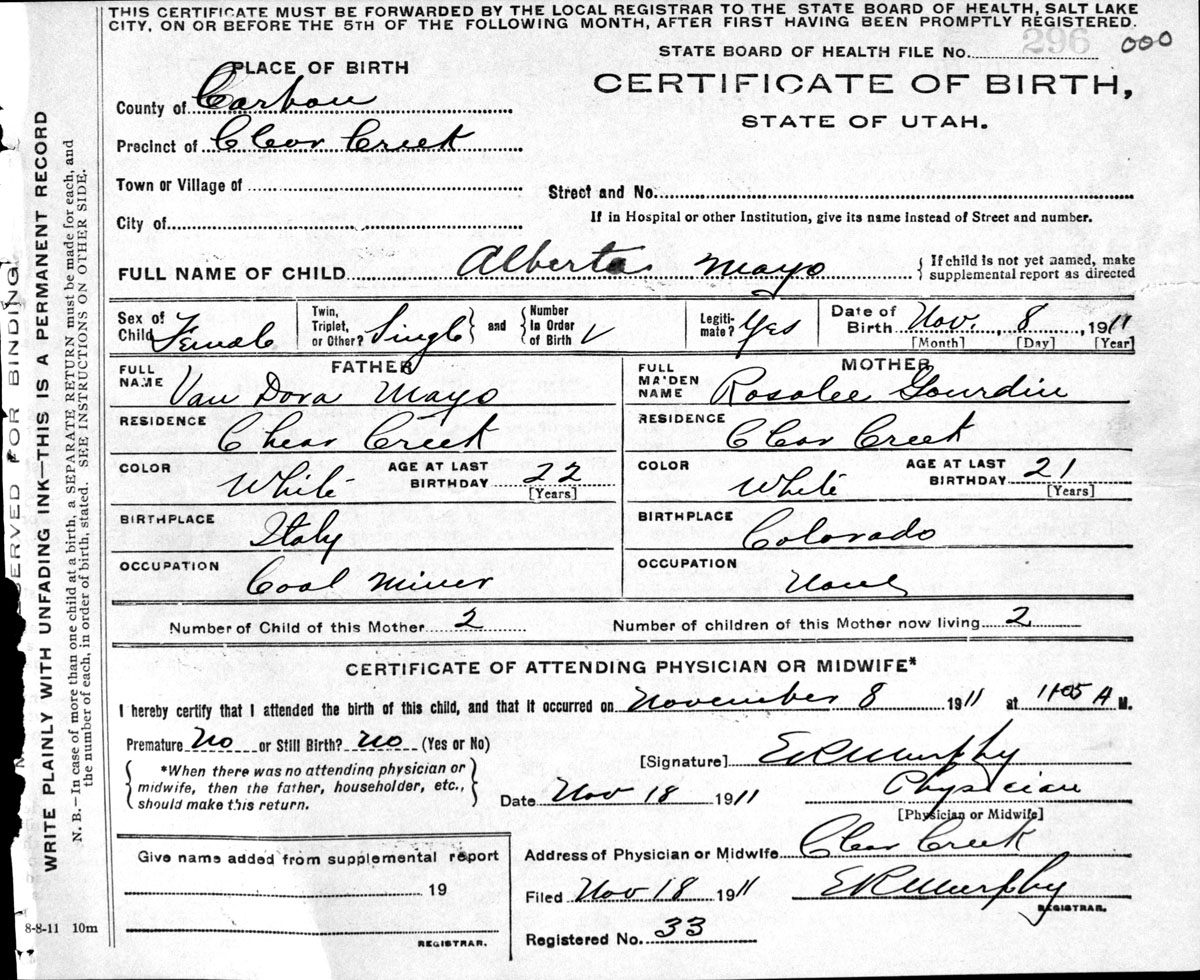 THIS CERTIFICATE MUST BE FORWARDED BY THE LOCAL REGISTRAR TO THE STATE BOARD OF HEALTH, SALT LAKE
CITY, ON OR BEFORE THE 5TH OF THE FOLLOWING MONTH, AFTER FIRST HAVING BEEN PROMPTLY REGISTERED.
STATE BOARD OF HEALTH FILE No. 296 000
PLACE OF BIRTH
CERTIFICATE OF BIRTH,
County of Carbon
STATE OF UTAH.
Precinct of Clear Creek
Town or Village of
Street and No.
City of
If in Hospital or other Institution, give its name instead of Street and number.
FULL NAME OF CHILD Alberta Mayo { If child is not yet named, make
supplemental report as directed
Sex of Child Female
Twin, Triplet, or Other? Single } and { Number In Order of Birth
Legiti-mate? Yes
Date of Birth Nov. , 8 , 1911
[Month] [Day] [Year]
FATHER
FULL NAME Van Dora Mayo
RESIDENCE Chear Creek
COLOR White AGE AT LAST BIRTHDAY 22
[Years]
BIRTHPLACE Italy
OCCUPATION Coal Miner
MOTHER
FULL MA'DEN NAME Rosalee Gourdin
RESIDENCE Clear Creek
COLOR White AGE AT LAST BIRTHDAY 21
[Years]
BIRTHPLACE Colorado
OCCUPATION None
Number of Child of this Mother 2 Number of children of this Mother now living 2
CERTIFICATE OF ATTENDING PHYSICIAN OR MIDWIFE*
I hereby certify that I attended the birth of this child, and that it occurred on November 8 1911 at 1105 A M.
Premature No or Still Birth? No (Yes or No)
[Signature] ERMurphy
{ *When there was no attending physician or
midwife, then the father, householder, etc.,
should make this return. }
Date Nov 18 1911 Physician
[Physician or Midwife]
Give name added from supplemental report
19
REGISTRAR.
Address of Physician or Midwife Clear Creek
Filed Nov 18 1911 ERMurphy
REGISTRAR.
Registered No. 33
8-8-11 10m
SERVED FOR BINDING
WRITE PLAINLY WITH UNFADING INK-THIS IS A PERMANENT RECORD
N. B.—In case of more than one child at a birth, a SEPARATE RETURN must be made for each, and
the number of each, in order of birth, stated. SEE INSTRUCTIONS ON OTHER SIDE.